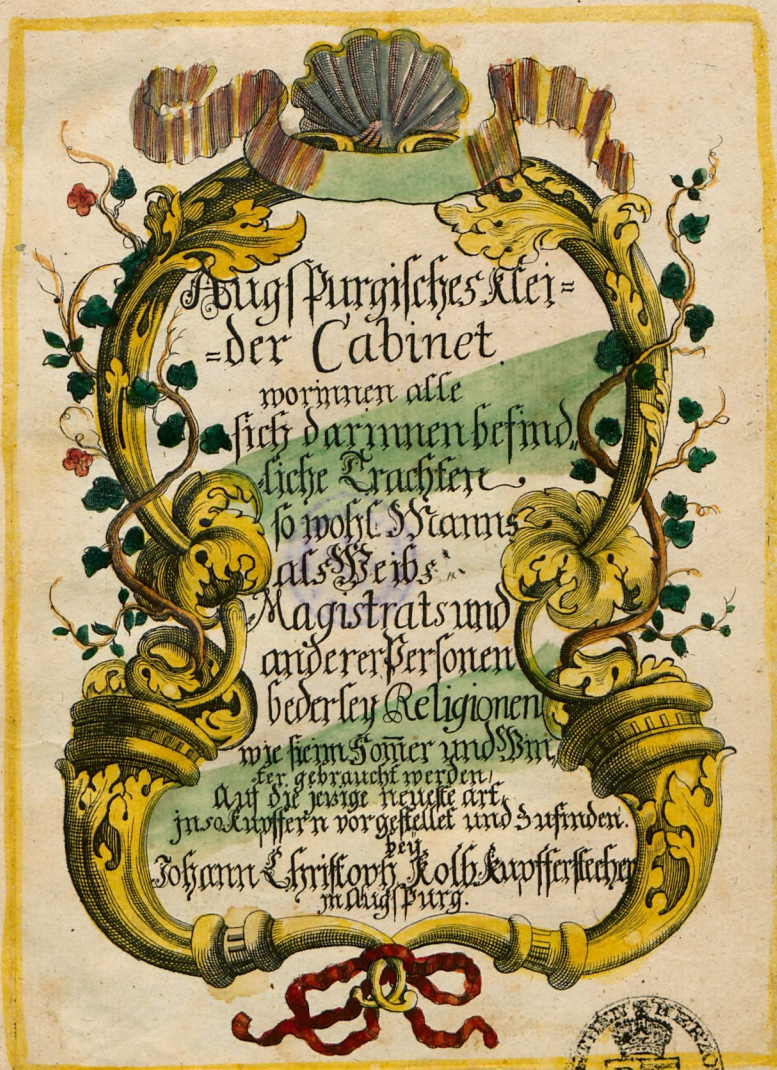 Augspurgisches Klei=
=der Cabinet
worinnen alle
sich darinnen befind„
liche Trachten
so wohl Manns
als Weibs
Magistrats und
anderer Personen
bederley Religionen
wie sie im Som̅er und Win„
ter gebraucht werden,
Auf die jezige neueste art,
in 50 Kupffern vorgestellet und zufinden.
bey
Johann Christoph Kolb Kupfferstecher
in Augspurg.